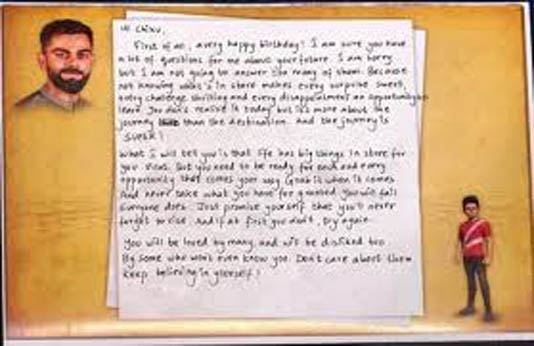 Hi Chiku,
First of all, a very happy birthday! I am sure you have
a lot of questions for me about your future. I am sorry
but I am not going to answer too many of them. Because
not knowing what's in store makes every surprise sweet,
every challenge thrilling and every disappointment an opportunity to
learn. You don't realise it today but it's more about the
journey than the destination. And the journey is
SUPER!
What I will tell you is that life has big things in store for
you Virat. But you need to be ready for each and every
opportunity that comes your way. Grab it when it comes.
And never take what you have for granted. You will fail.
Everyone does. Just promise yourself that you'll never
forget to rise. And if at first you don't, try again.
You will be loved by many, and will be disliked too
By some who won't even know you. Don't care about them.
Keep believing in yourself!